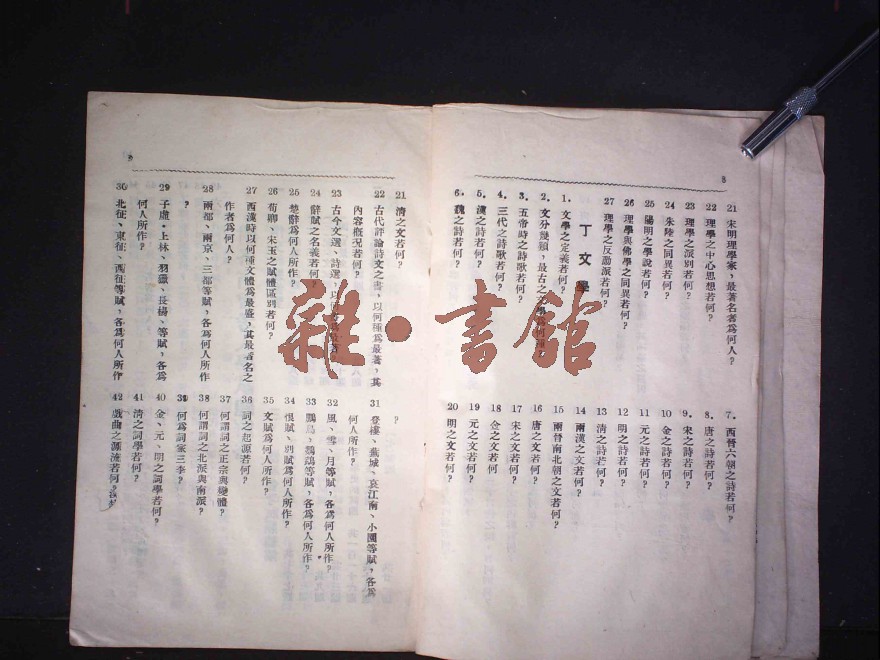 8
21 宋明理學家，最著名者爲何人？
22 理學之中心思想若何？
23 理學之派別若何？
24 朱陸之同異若何？
25 陽明之學說若何？
26 理學與佛學之同異若何？
27 理學之反動派若何？
丁 文學
1. 文學之定義若何？
2. 文分幾類，最古之文學爲何種
3. 五帝時之詩歌若何？
4. 三代之詩歌若何？
5. 漢之詩若何？
6. 魏之詩若何？
7. 西晉六朝之詩若何？
8. 唐之詩若何？
9. 宋之詩若何？
10 金之詩若何？
11 元之詩若何？
12 明之詩若何？
13 清之詩若何？
14 兩漢之文若何？
15 兩晉南北朝之文若何？
16 唐之文若何？
17 宋之文若何？
18 金之文若何？
19 元之文若何？
20 明之文若何？
9
21 清之文若何？
22 古代評論詩文之書，以何種爲最著，其
內容概況若何？
23 古今文選、詩選，以何者爲最著
24 辭賦之名義若何？
25 楚辭爲何人所作？
26 荀卿、宋玉之賦體區別若何？
27 西漢時以何種文體爲最盛，其最著名之
作者爲何人？
28 兩都、兩京、三都等賦，各爲何人所作
？
29 子虛、上林、羽獵、長楊、等賦，各爲
何人所作？
30 北征、東征、西征等賦，各爲何人所作
？
31 登樓、蕪城、哀江南、小園等賦，各爲
何人所作？
32 風、雪、月等賦，各爲何人所作？
33 鵩鳥、鸚鵡等賦，各爲何人所作？
34 恨賦、別賦爲何人所作？
35 文賦爲何人所作？
36 詞之起源若何？
37 何謂詞之正宗與變體？
38 何謂詞之北派與南派？
39 何爲詞家三李？
40 金、元、明之詞學若何？
41 清之詞學若何？
42 戲曲之源流若何？
雜·書館